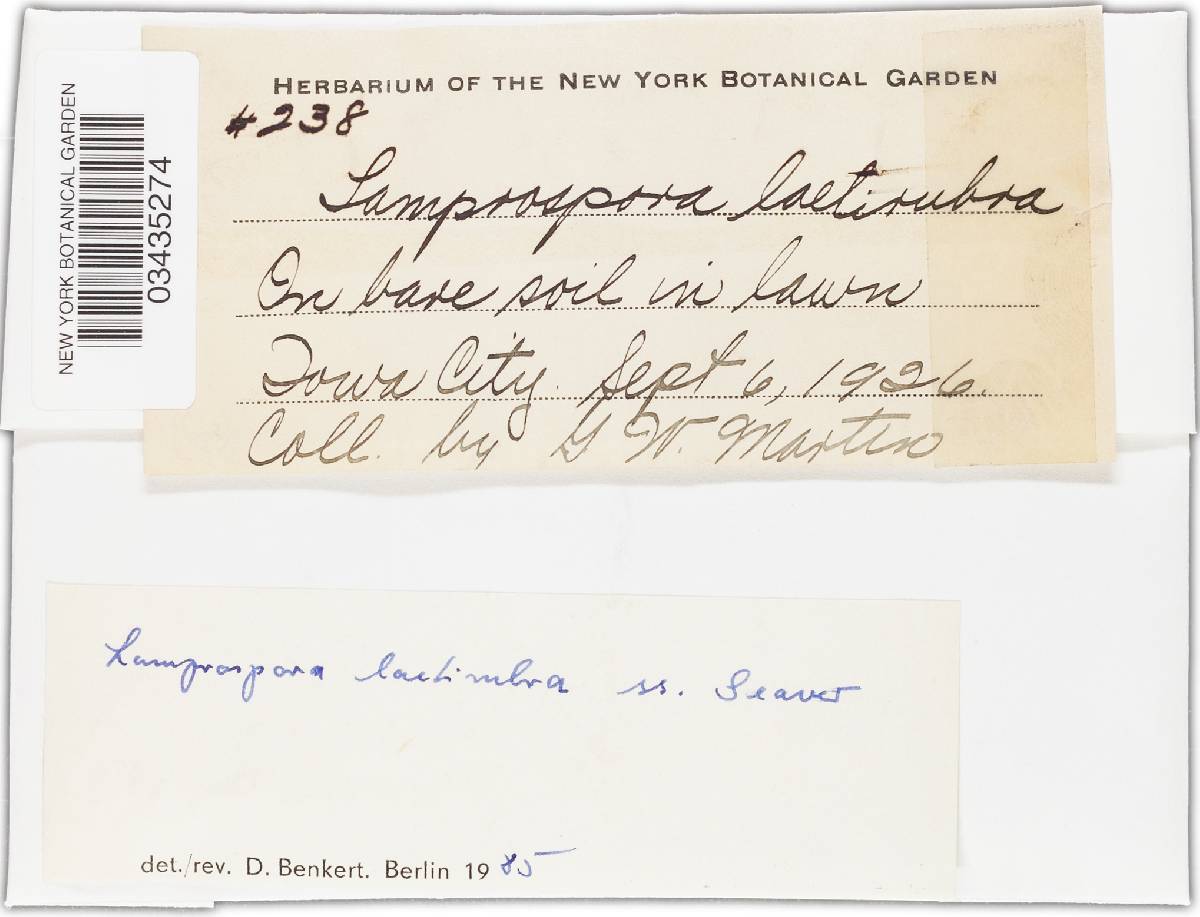 NEW YORK BOTANICAL GARDEN
03435274
HERBARIUM OF THE NEW YORK BOTANICAL GARDEN
#238
Lamprospora laetirubra
On bare soil in lawn
Iowa City. Sept 6, 1926.
Coll. by G W. Martin
Lamprospora laetirubra ss. Seaver
det./rev. D. Benkert. Berlin 1985